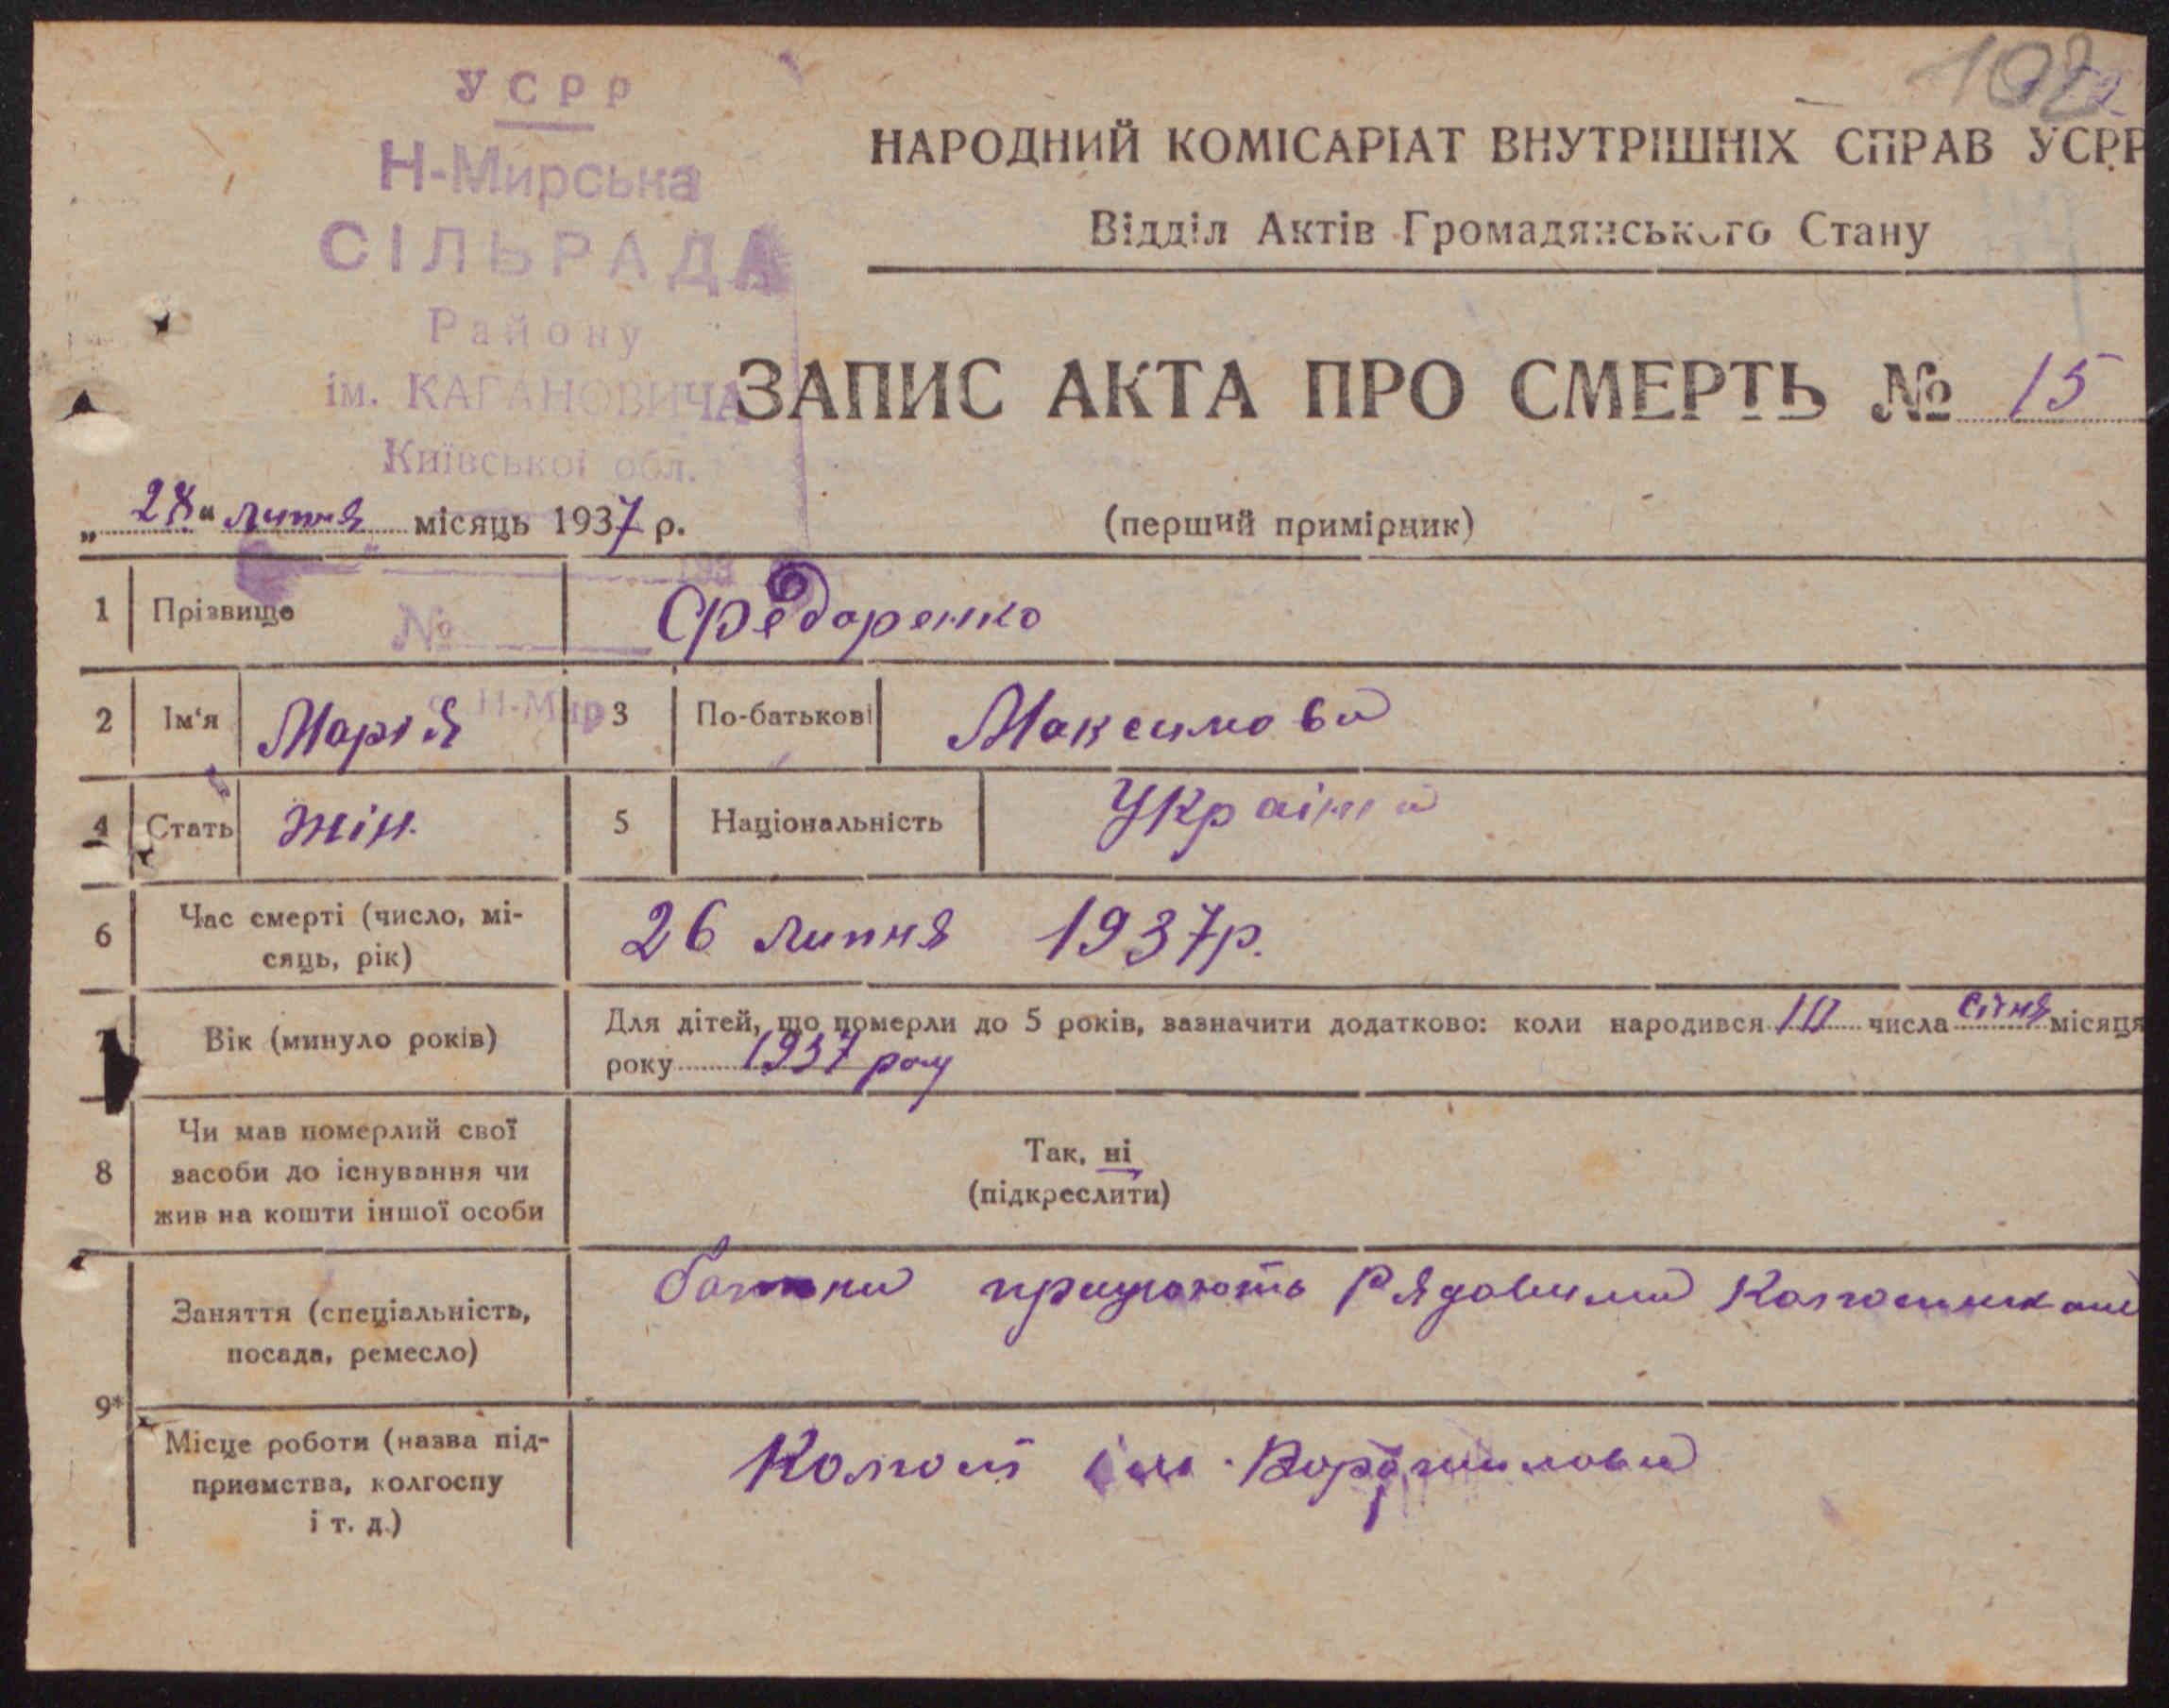 102
УСРР
Н-Мирська
СІЛЬРАДА
Району
ім. КАГАНОВИЧА
Київської обл.
193
№
с. Н-Мир
НАРОДНИЙ КОМІСАРІАТ ВНУТРІШНІХ СПРАВ УСРР
Відділ Актів Громадянського Стану
ЗАПИС АКТА ПРО СМЕРТЬ № 15
„28“ липня місяць 1937 р.
(перший примірник)
1 Прізвище Федоренко
2 Ім'я Марія 3 По-батькові Максимова
4 Стать жін. 5 Національність Україна
6 Час смерті (число, мі-
сяць, рік) 26 липня 1937р.
7 Вік (минуло років) Для дітей, що померли до 5 років, зазначити додатково: коли народився 10 числа січня місяця
року 1937 року
8 Чи мав померлий свої
засоби до існування чи
жив на кошти іншої особи
Так, ні
(підкреслити)
9*
Заняття (спеціальність,
посада, ремесло)
батьки працюють Рядовими Колгоспниками
Місце роботи (назва під-
приємства, колгоспу
і т. д.)
Колгосп ім. Ворошилова